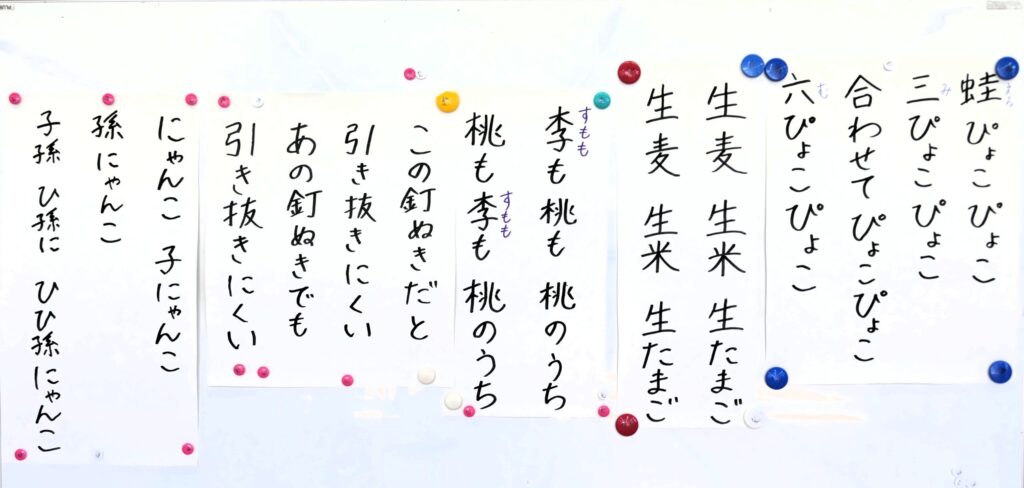 蛙ぴょこぴょこ
三ぴょこぴょこ
合わせてぴょこぴょこ
六ぴょこぴょこ
生麦 生米 生たまご
生麦 生米 生たまご
李も桃も 桃のうち
桃も李も 桃のうち
この釘ぬきだと
引き抜きにくい
あの釘ぬきでも
引き抜きにくい
にゃんこ 子にゃんこ
孫にゃんこ
子孫 ひ孫に ひひ孫にゃんこ